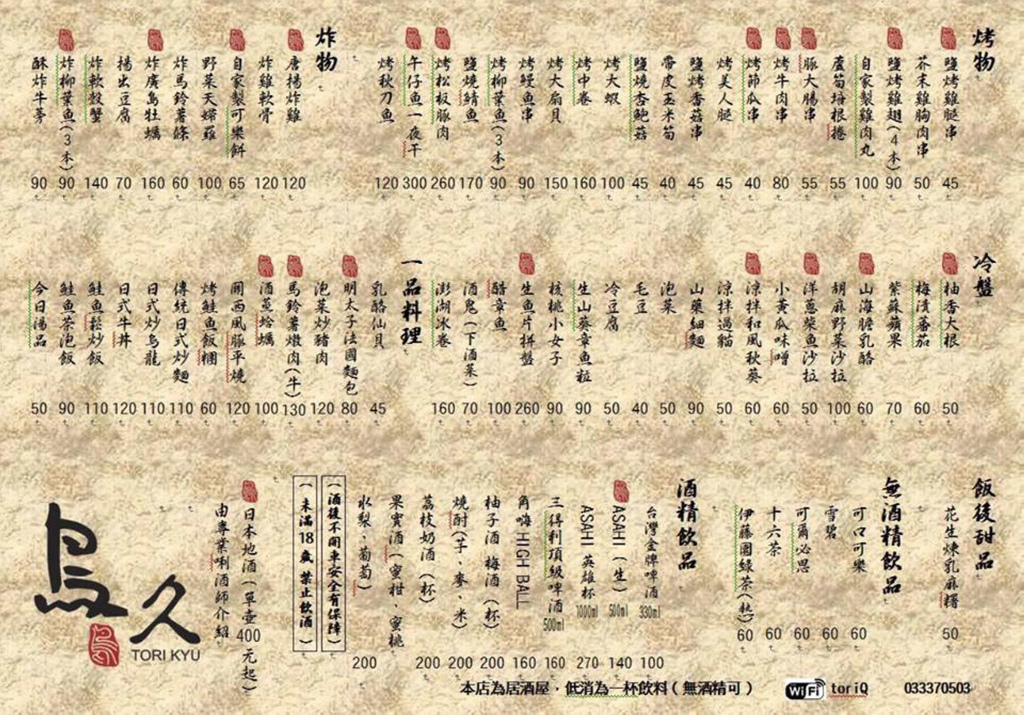 烤物
鹽烤雞腿串 45
芥末雞胸肉串 50
鹽烤雞翅(4本) 90
自家製雞肉丸 100
蘆筍培根捲 55
豚大腸串 55
烤牛肉串 80
烤節瓜串 40
烤美人腿 45
鹽烤香菇串 45
帶皮玉米筍 40
鹽燒杏鮑菇 45
烤大蝦 100
烤中卷 160
烤大扇貝 150
烤鰻魚串 90
烤柳葉魚(3本) 90
鹽燒鯖魚 170
烤松板豚肉 260
午仔魚一夜干 300
烤秋刀魚 120
炸物
唐揚炸雞 120
炸雞軟骨 120
自家製可樂餅 65
野菜天婦羅 100
炸馬鈴薯條 60
炸廣島牡蠣 160
揚出豆腐 70
炸軟殼蟹 140
炸柳葉魚(3本) 90
酥炸牛蒡 90
冷盤
柚香大根 50
梅漬番茄 60
紫蘇蘋果 70
山海膽乳酪 60
胡麻野菜沙拉 100
洋蔥柴魚沙拉 50
小黃瓜味噌 60
涼拌和風秋葵 60
涼拌過貓 50
山藥細麵 90
泡菜 50
毛豆 40
冷豆腐 50
生山葵章魚粒 90
核桃小女子 90
生魚片拼盤 260
醋章魚 100
酒鬼(下酒菜) 70
澎湖冰卷 160
一品料理
乳酪仙貝 45
明太子法國麵包 80
泡菜炒豬肉 120
馬鈴薯燉肉(牛) 130
酒蒸蛤蠣 100
關西風豚平燒 120
烤鮭魚飯糰 60
傳統日式炒麵 110
日式炒烏龍 110
日式牛丼 120
鮭魚菘炒飯 110
鮭魚茶泡飯 90
今日湯品 50
飯後甜品
花生煉乳麻糬 50
無酒精飲品
可口可樂 60
雪碧 60
可爾必思 60
十六茶 60
伊藤園綠茶(熱) 60
酒精飲品
台灣金牌啤酒 330ml 100
ASAHI(生) 500ml 140
ASAHI 英雄杯 1000ml 270
三得利頂級啤酒 500ml 160
角嗨 HIGH BALL 160
柚子酒 梅酒(杯) 200
燒酎(芋、麥、米) 200
荔枝奶酒(杯) 200
果實酒(蜜柑、蜜桃
水梨、葡萄) 200
(酒後不開車安全有保障)
(未滿18歲 禁止飲酒)
日本地酒(單壺400元起)
由專業唎酒師介紹
鳥久
TORI KYU
本店為居酒屋·低消為一杯飲料(無酒精可)
WiFi toriQ 033370503